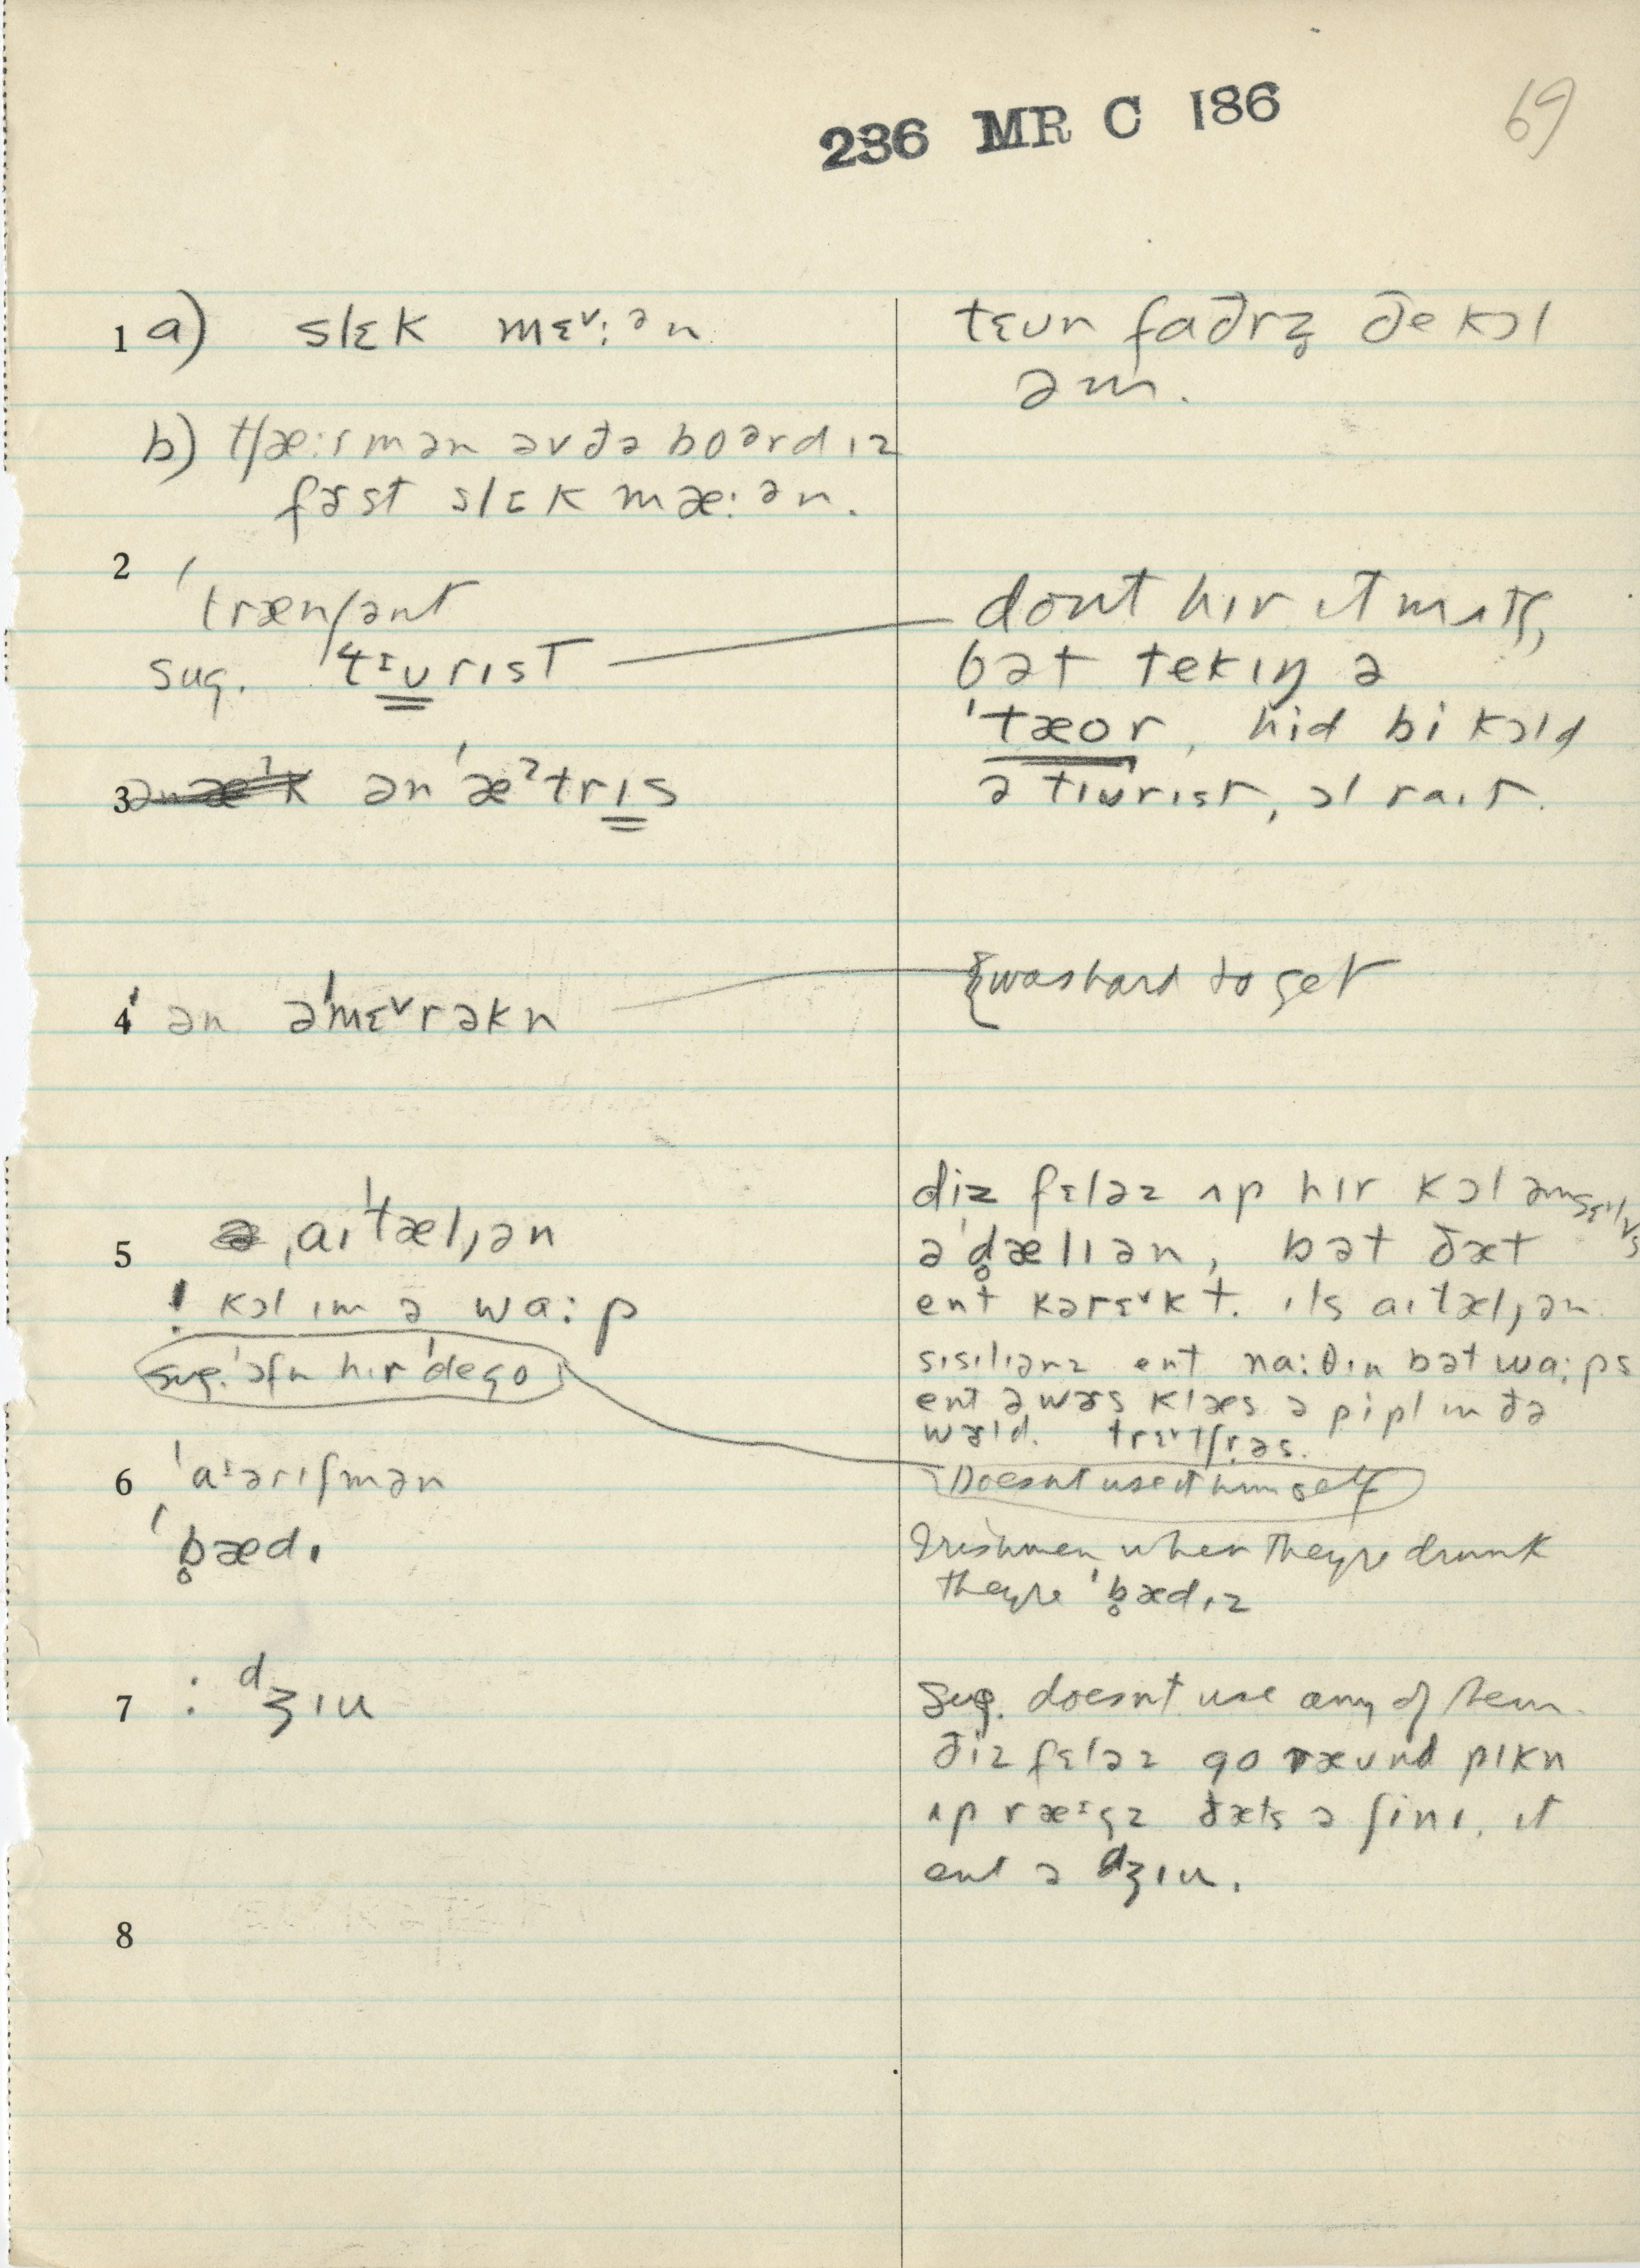 236 MR C 186
69
1 a) slɛk mɛ˅:ᵊn
tɛʊn faðrz̥ ðe kɔl
əm.
b) tʃæ:rmən əv ðə boərd ɪz
fɜst slɛk mæ:ᵊn.
2 ˈtrænʃənt
sug. ˈtɪʊrɪst
dont hɪr ɪt mʌtʃ,
bət tekɪŋ ə
ˈtæor, hid bi kɔld
ə tɪʊrist, ɔl raɪt.
3 ən ˈæˀtrɪs
4 ən əˈmɛ˅rəkn
{was hard to get
5 ˌaɪˈtæljən
! kɔl ɪm ə wa:p
sug. ˈɔfn hɪr ˈdego
diz fɛləz ʌp hɪr kɔl əmsɛlvs
əˈd̥ælɪən, bət ðæt
ent kərɛ˅kt. ɪts aɪtæljən.
sɪsɪlɪənz ent na:θɪn bət wa:ps
ent ə wɜs klæs ə pipl ɪn ðə
wɜld. trɛ˅tʃrəs.
Doesnt use it himself
6 ˈaᶦərɪʃmən
ˈb̥ædɪ
Irishmen when they're drunk
they're ˈb̥ædɪz
7 : ᵈʒɪu
Sug. doesnt use any of them.
ðiz fɛləz go ræʊnd pɪkn
ʌp ræᶦgz ðæts ə ʃinɪ. ɪt
ent ə ᵈʒɪu.
8